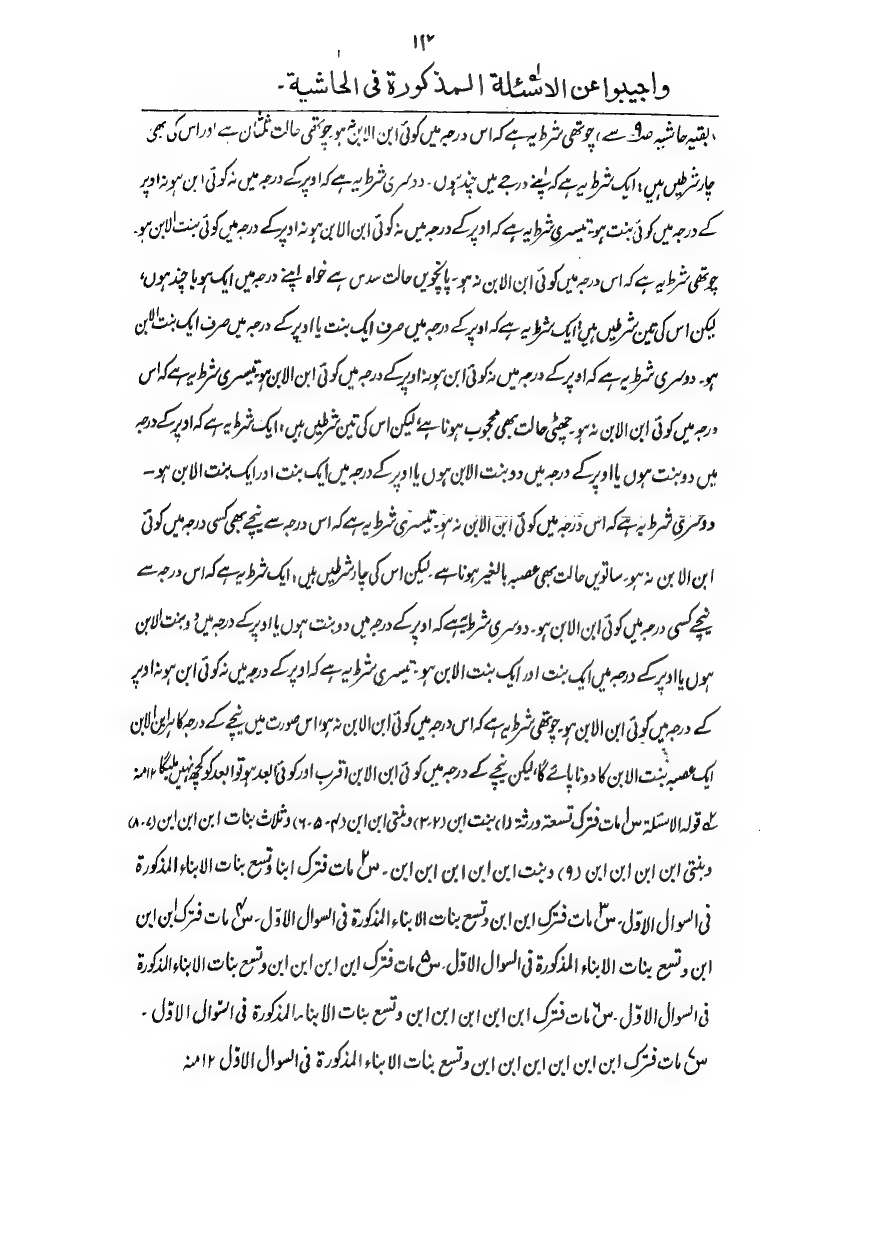 ۱۲
واجیبوا عن الاسئلة المذکورة فی الحاشیة۔
(بقیہ حاشیہ صـ۹ سے) چوتھی شرط یہ ہے کہ اس درجہ میں کوئی ابن الابن نہ ہو چوتھی حالت ثلثان ہے اور اس کی بھی
چار شرطیں ہیں؛ ایک شرط یہ ہے کہ اپنے درجے میں چند ہوں۔ دوسری شرط یہ ہے کہ اوپر کے درجہ میں نہ کوئی ابن ہو نہ اوپر
کے درجہ میں کوئی بنت ہو۔ تیسری شرط یہ ہے کہ اوپر کے درجہ میں نہ کوئی ابن الابن ہو نہ اوپر کے درجہ میں کوئی بنت الابن ہو۔
چوتھی شرط یہ ہے کہ اس درجہ میں کوئی ابن الابن نہ ہو۔ پانچویں حالت سدس ہے خواہ اپنے درجہ میں ایک ہو یا چند ہوں،
لیکن اس کی تین شرطیں ہیں؛ ایک شرط یہ ہے کہ اوپر کے درجہ میں صرف ایک بنت یا اوپر کے درجہ میں صرف ایک بنت الابن
ہو۔ دوسری شرط یہ ہے کہ اوپر کے درجہ میں نہ کوئی ابن ہو نہ اوپر کے درجہ میں کوئی ابن الابن ہو تیسری شرط یہ ہے کہ اس
درجہ میں کوئی ابن الابن نہ ہو۔ چھٹی حالت بھی محجوب ہونا ہے، لیکن اس کی تین شرطیں ہیں؛ ایک شرط یہ ہے کہ اوپر کے درجہ
میں دو بنت ہوں یا اوپر کے درجہ میں دو بنت الابن ہوں یا اوپر کے درجہ میں ایک بنت اور ایک بنت الابن ہو –
دوسری شرط یہ ہے کہ اس درجہ میں کوئی ابن الابن نہ ہو۔ تیسری شرط یہ ہے کہ اس درجہ سے نیچے بھی کسی درجہ میں کوئی
ابن الابن نہ ہو۔ ساتویں حالت بھی عصبہ بالغیر ہونا ہے۔ لیکن اس کی چار شرطیں ہیں؛ ایک شرط یہ ہے کہ اس درجہ سے
نیچے کسی درجہ میں کوئی ابن الابن ہو۔ دوسری شرط یہ ہے کہ اوپر کے درجہ میں دو بنت ہوں یا اوپر کے درجہ میں دو بنت الابن
ہوں یا اوپر کے درجہ میں ایک بنت اور ایک بنت الابن ہو۔ تیسری شرط یہ ہے کہ اوپر کے درجہ میں نہ کوئی ابن ہو نہ اوپر
کے درجہ میں کوئی ابن الابن ہو۔ چوتھی شرط یہ ہے کہ اس درجہ میں کوئی ابن الابن نہ ہو، اس صورت میں نیچے کے درجہ کا ہر ابن الابن
ایک عصبہ بنت الابن کا دونا پائے گا، لیکن نیچے کے درجہ میں کوئی ابن الابن اقرب اور کوئی ابعد ہو تو ابعد کو کچھ نہیں ملیگا ۱۲ منہ
لہ قولہ الاسئلة س۱ مات فترک تسعة ورثة (۱) بنت ابن (۲-۳) وبنتی ابن ابن (۴-۵-۶) وثلاث بنات ابن ابن ابن (۷-۸)
وبنتی ابن ابن ابن ابن (۹) وبنت ابن ابن ابن ابن ابن۔ س۲ مات فترک ابنا وتسع بنات الابناء المذکورة
فی السوال الاوّل۔ س۳ مات فترک ابن ابن وتسع بنات الابناء المذکورة فی السوال الاوّل۔ س۴ مات فترک ابن ابن
ابن وتسع بنات الابناء المذکورة فی السوال الاوّل۔ س۵ مات فترک ابن ابن ابن ابن وتسع بنات الابناء المذکورة
فی السوال الاوّل۔ س۶ مات فترک ابن ابن ابن ابن ابن وتسع بنات الابناء المذکورة فی السوال الاوّل۔
س۷ مات فترک ابن ابن ابن ابن ابن ابن وتسع بنات الابناء المذکورة فی السوال الاوّل ۱۲ منہ